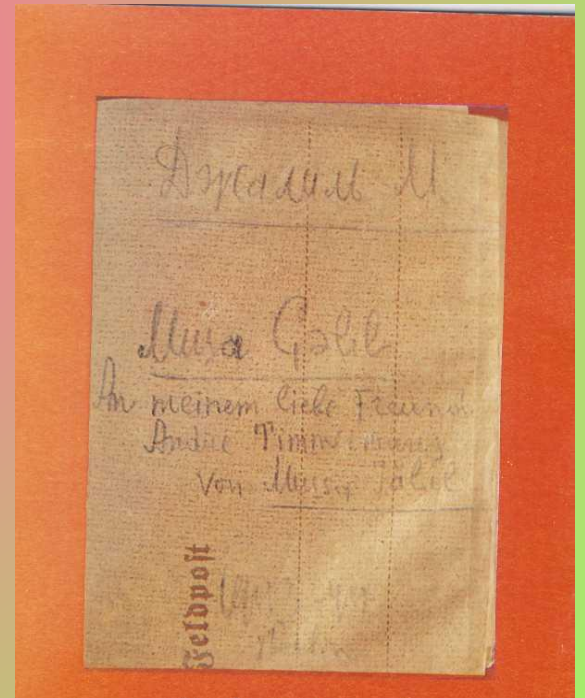 Джалиль М
Musa Çəlil
An meinem liebe Freund
Andre Timmermans
Von Mussa Jalil
Feldpost